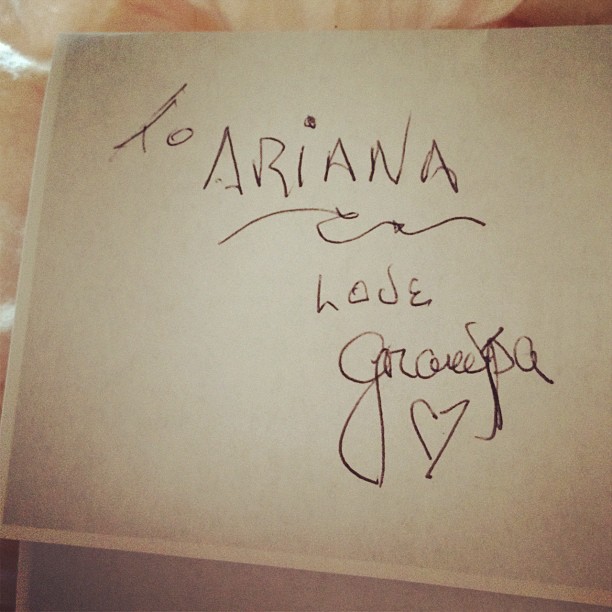 To ARiANA
LOVE
Grampa